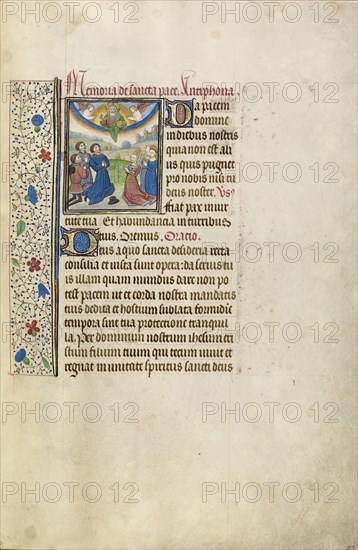 Memoria de sancta pace. Antiphona.
Da pacem
domine
in diebus nostris
quia non est ali
us quis pugnet
pro nobis nisi tu
deus noster. Vs
fiat pax in uir
tute tua Et habundancia in turribus
tuis. Oremus. Oracio.
Deus a quo sancta desideria recta
consilia et iusta sunt opera: da seruis tu
is illam quam mundus dare non po
test pacem ut et corda nostra mandatis
tuis dedita et hostium sublata formidine
tempora sint tua protectione tranquil
la. Per dominum nostrum ihesum cri
stum filium tuum qui tecum uiuit et
regnat in unitate spiritus sancti deus